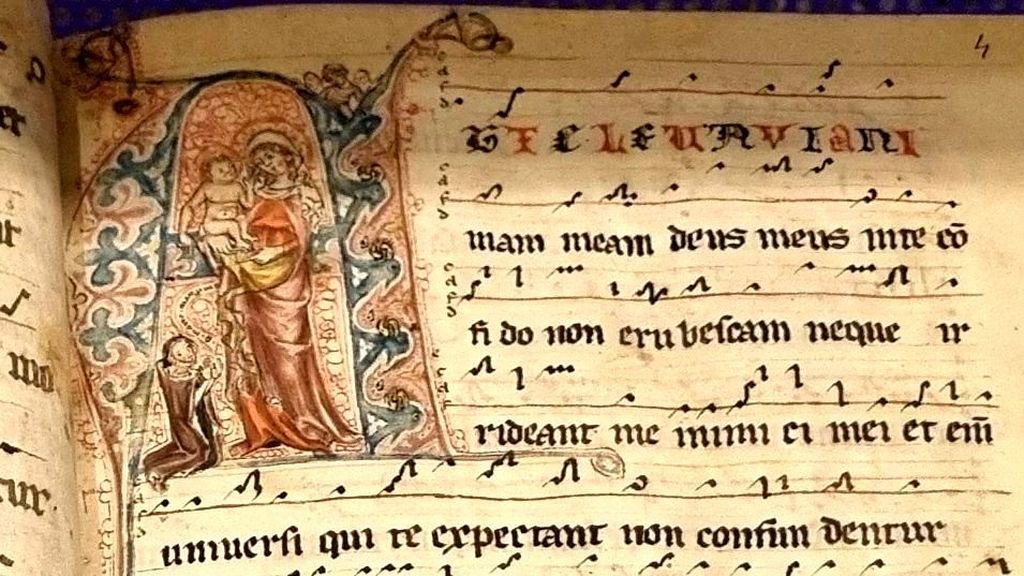 4
AD TE LEUAVI ANI
mam meam deus meus in te cō
fi do non erubescam neque ir
rideant me inimi ci mei et enī
uniuersi qui te expectant non confun dentur